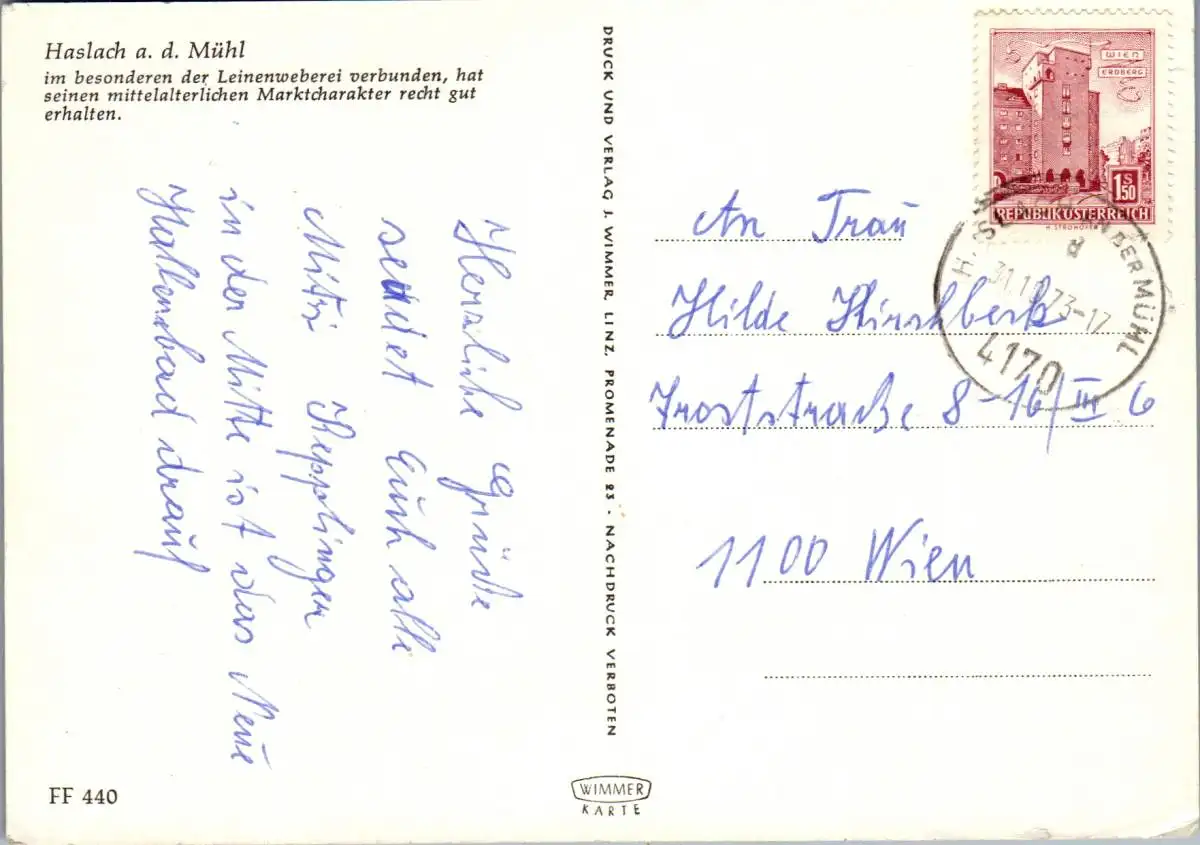 Haslach a. d. Mühl
im besonderen der Leinenweberei verbunden, hat
seinen mittelalterlichen Marktcharakter recht gut
erhalten.
Herzliche Grüße
sendet Euch alle
Mitzi Kepplinger
in der Mitte ist das Neue
Hallenbad drauf
FF 440
DRUCK UND VERLAG J. WIMMER, LINZ, PROMENADE 23 · NACHDRUCK VERBOTEN
WIMMER
KARTE
WIEN
ERDBERG
1 S 50
REPUBLIK ÖSTERREICH
H. STROHOFER
DER MÜHL
73-17
4170
An Frau
Hilde Hirschbeck
Troststraße 8-16/III 6
1100 Wien